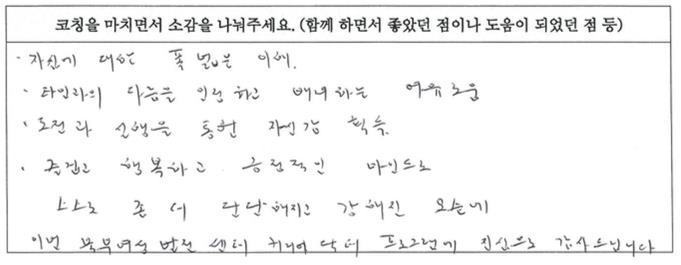 코칭을 마치면서 소감을 나눠주세요. (함께 하면서 좋았던 점이나 도움이 되었던 점 등)
· 자신에 대한 폭 넓은 이해.
· 타인과의 다름을 인정하고 배려하는 여유로움
· 도전과 실행을 통한 자신감 획득.
· 즐겁고 행복하고 긍정적인 마인드로
스스로 좀 더 단단해지고 강해진 오늘에
이번 북부여성발전센터 커리어 닥터 프로그램에 진심으로 감사드립니다